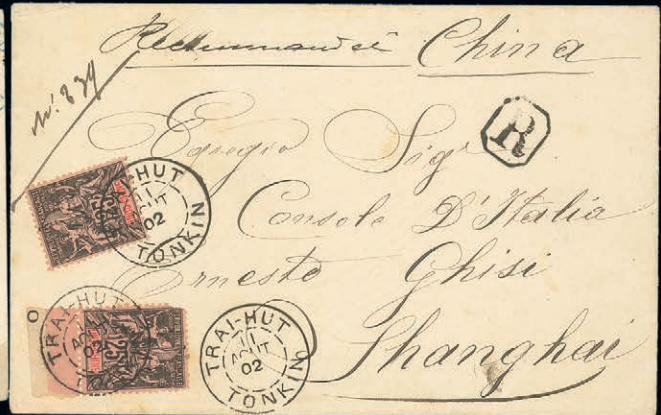 Recommandée China
N.° 839
R
Egregio Sigr
Console D'Italia
Ernesto Ghisi
Shanghai
TRAI-HUT
11
AOUT
02
TONKIN
25
TRAI-HUT
11
AOUT
02
25
TRAI-HUT
11
AOUT
02
TONKIN